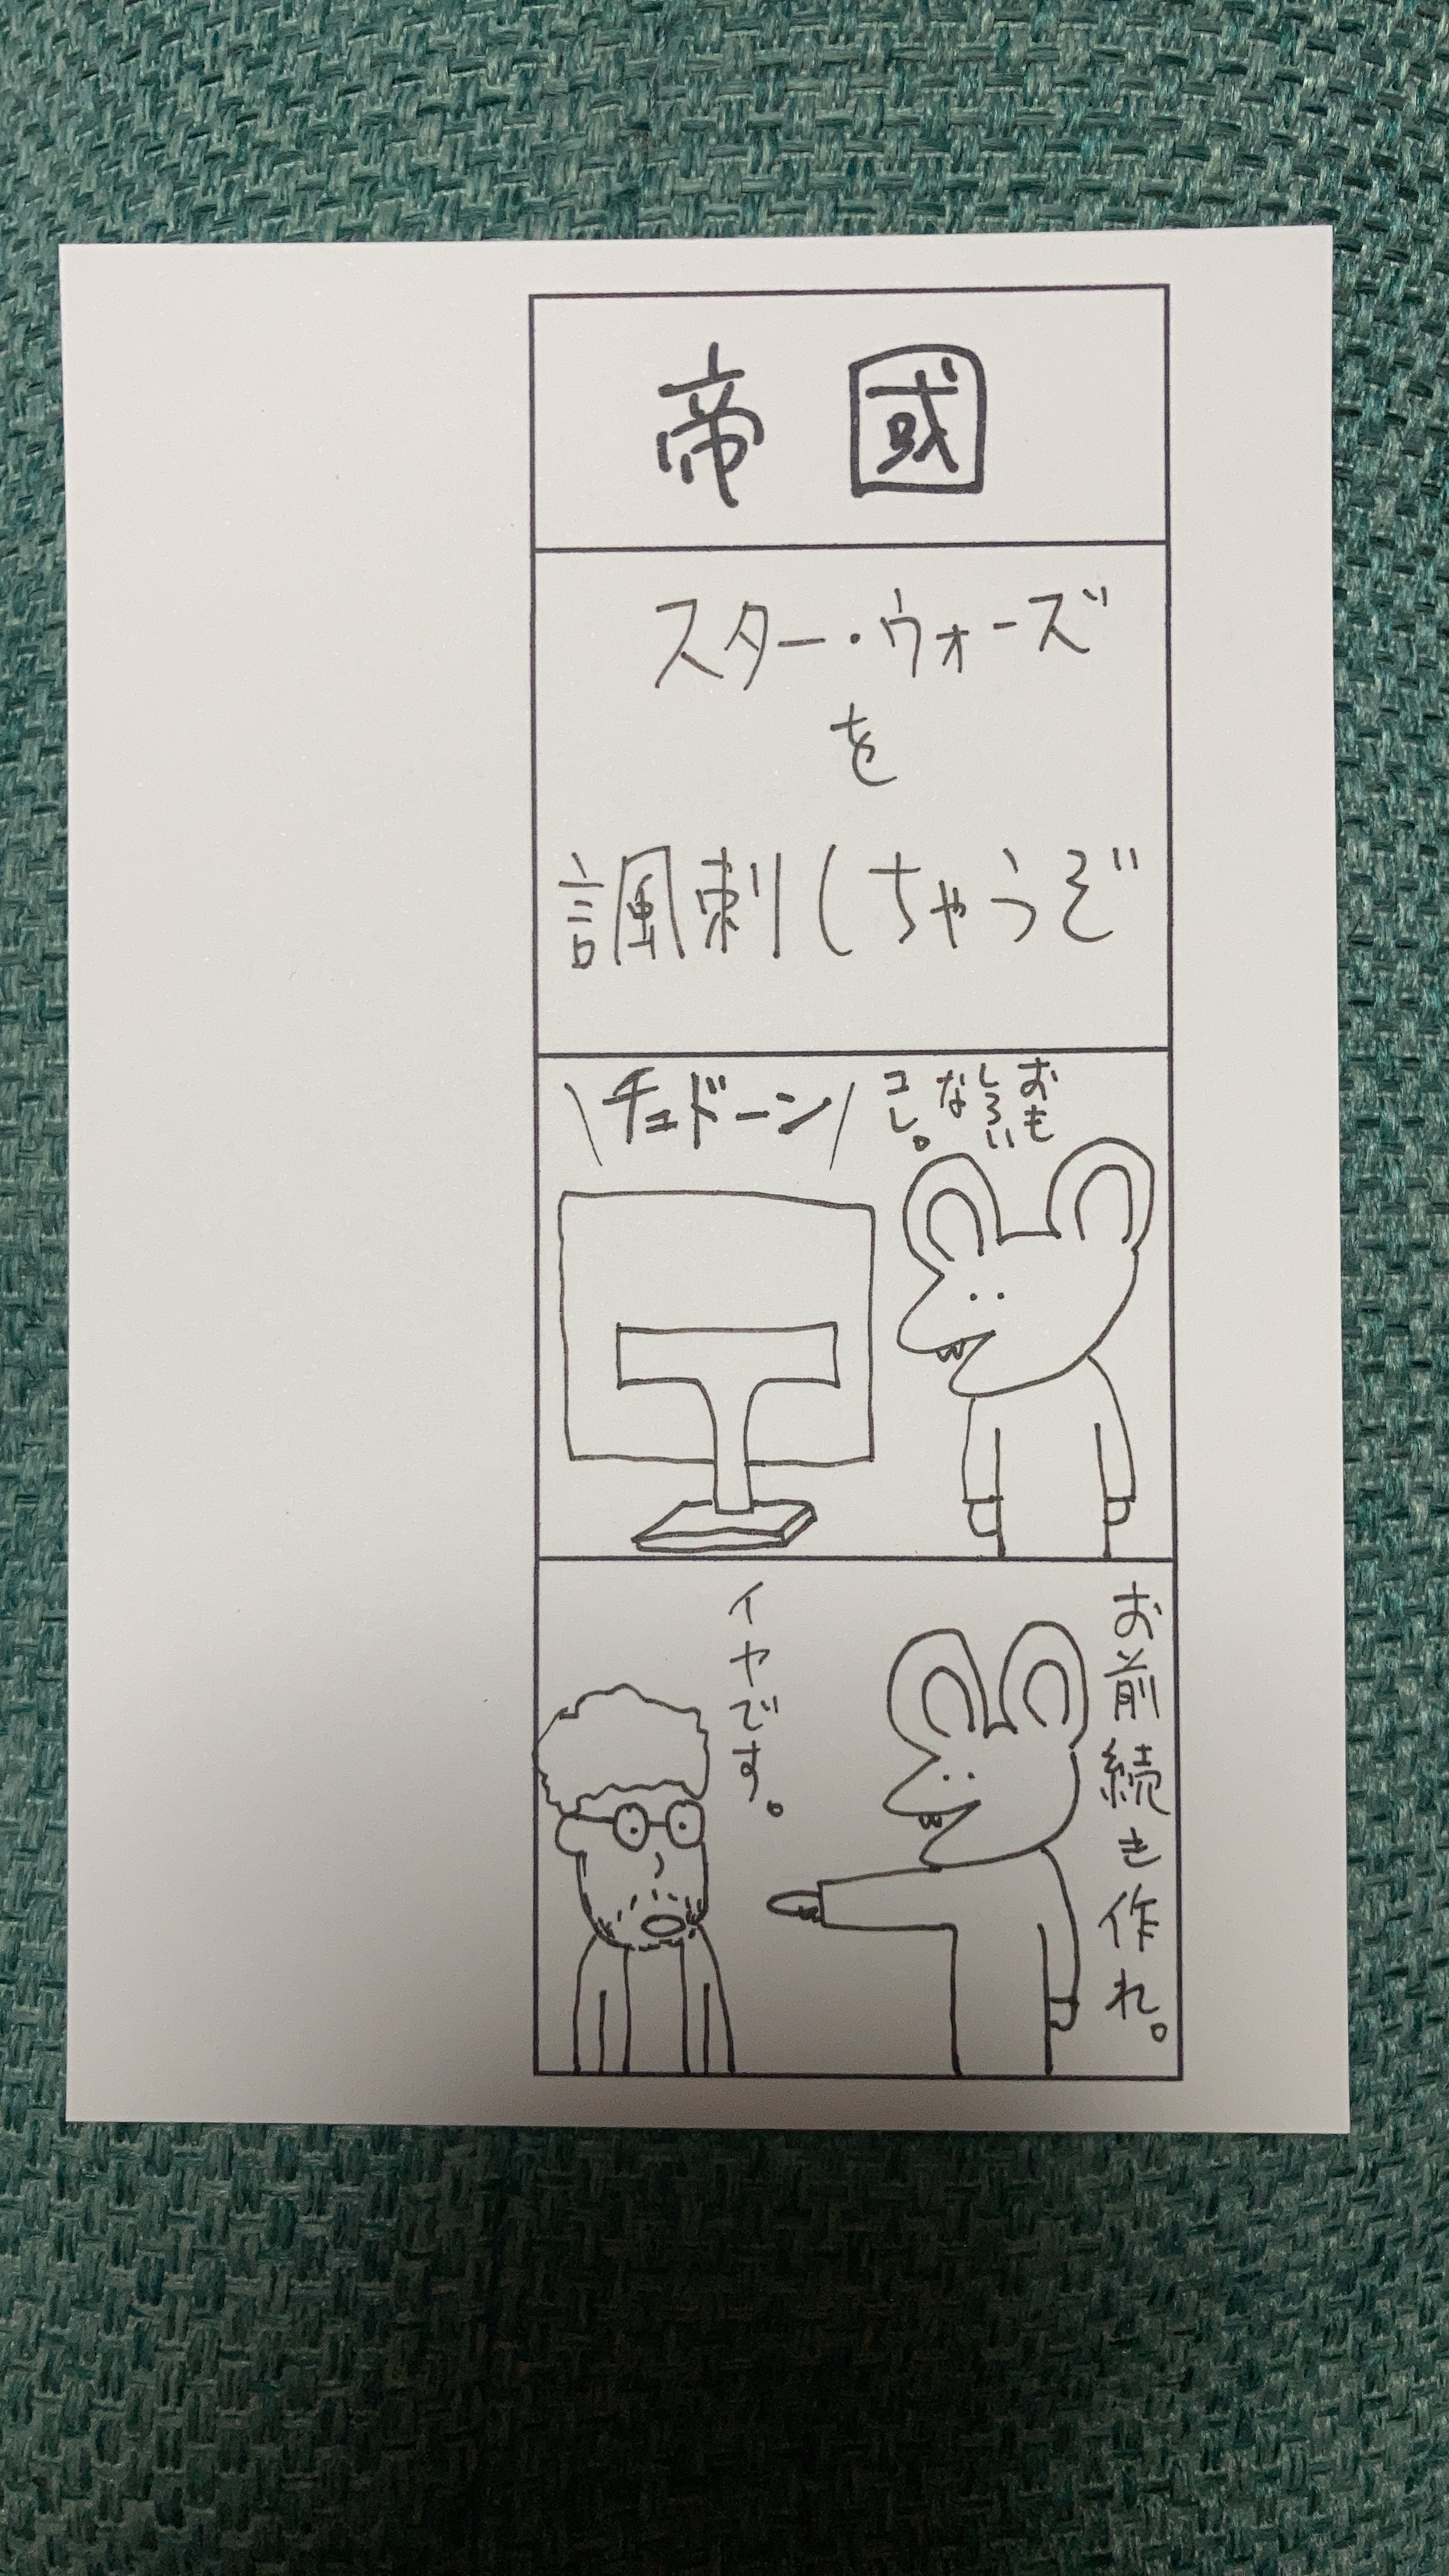 帝國
スター・ウォーズ
を
諷刺しちゃうぞ
おも
しろい
な
コレ。
\チュドーン/
お前続き作れ。
イヤです。